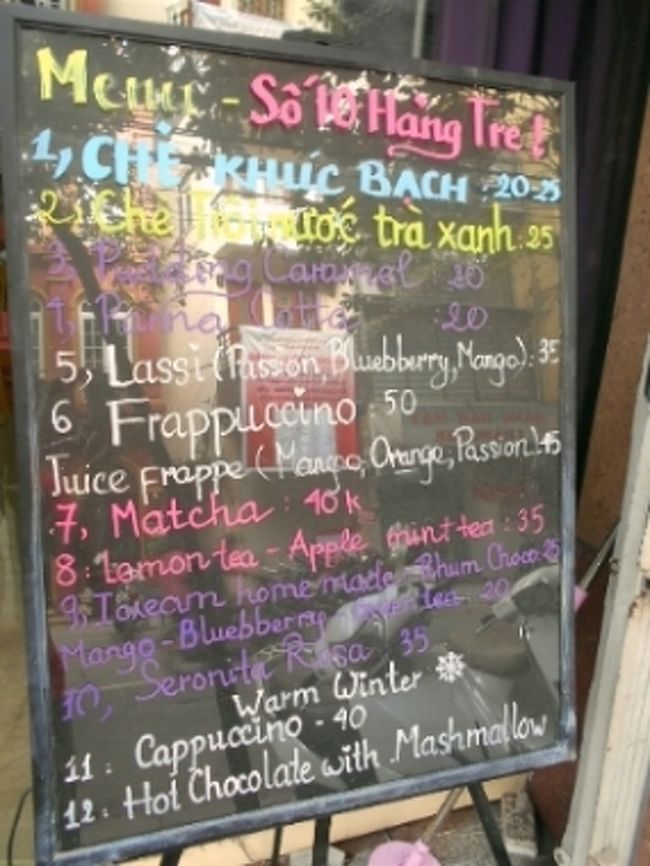 Menu - Số 10 Hàng Tre !
1, CHÈ KHÚC BẠCH . 20-25
2. Chè Trôi nước trà xanh : 25
3, Pudding Caramel 20
4, Panna Cotta : 20
5, Lassi (Passion, Bluebberry, Mango) : 35
6 Frappuccino : 50
Juice Frappe (Mango, Orange, Passion) 45
7, Matcha : 40k
8 : Lemon tea - Apple mint tea : 35
9, Icream home made Rhum Choco: 25
Mango - Bluebberry green tea 20
10, Seronita Rosa 35
Warm Winter
11 : Cappuccino - 40
12 : Hot Chocolate with Mashmallow